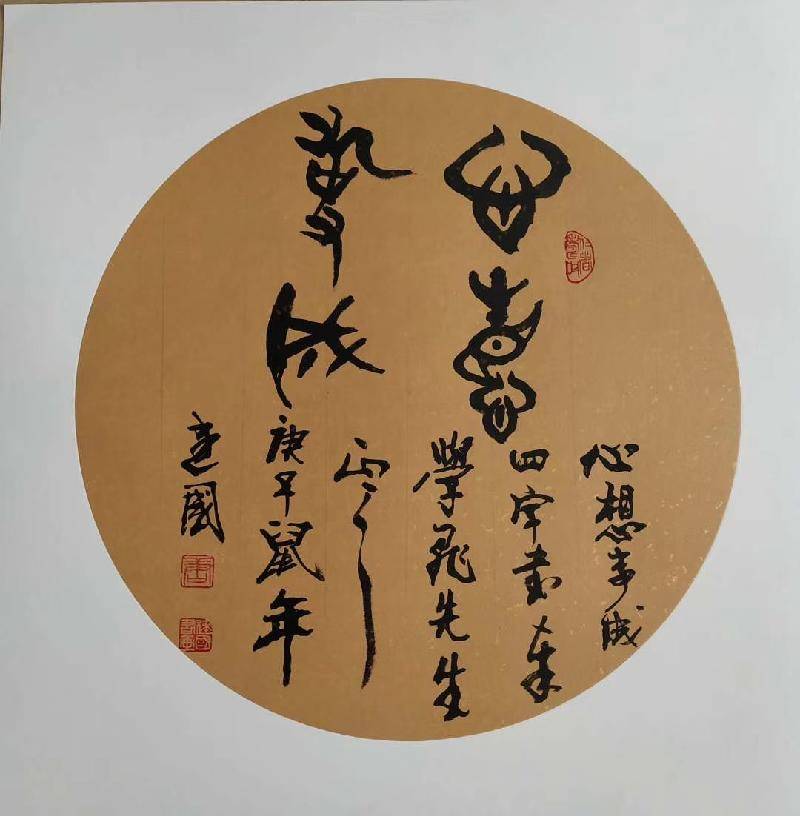 心想
事成
心想事成
四字書奉
學先生
正之
庚子鼠年
建國